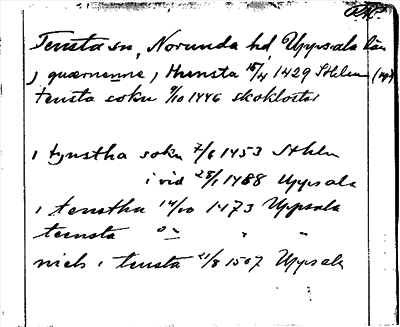 Tensta sn, Norunda hd, Uppsala län
j quærnenne j Thensta 15/4 1429 Sthlm
tensta sokn 9/10 1446 skokloster
i tynstha sokn 2/6 1453 Sthlm
i vid 28/1 1488 Uppsala
i tenstha 14/10 1473 Uppsala
teensta " "
nicls i tensta 21/8 1507 Uppsala